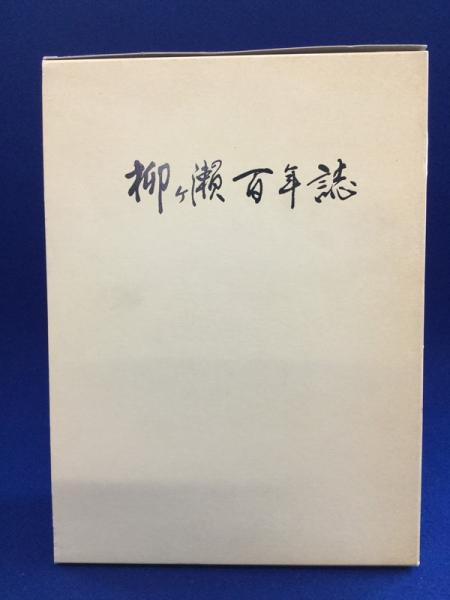 柳ヶ瀬百年誌